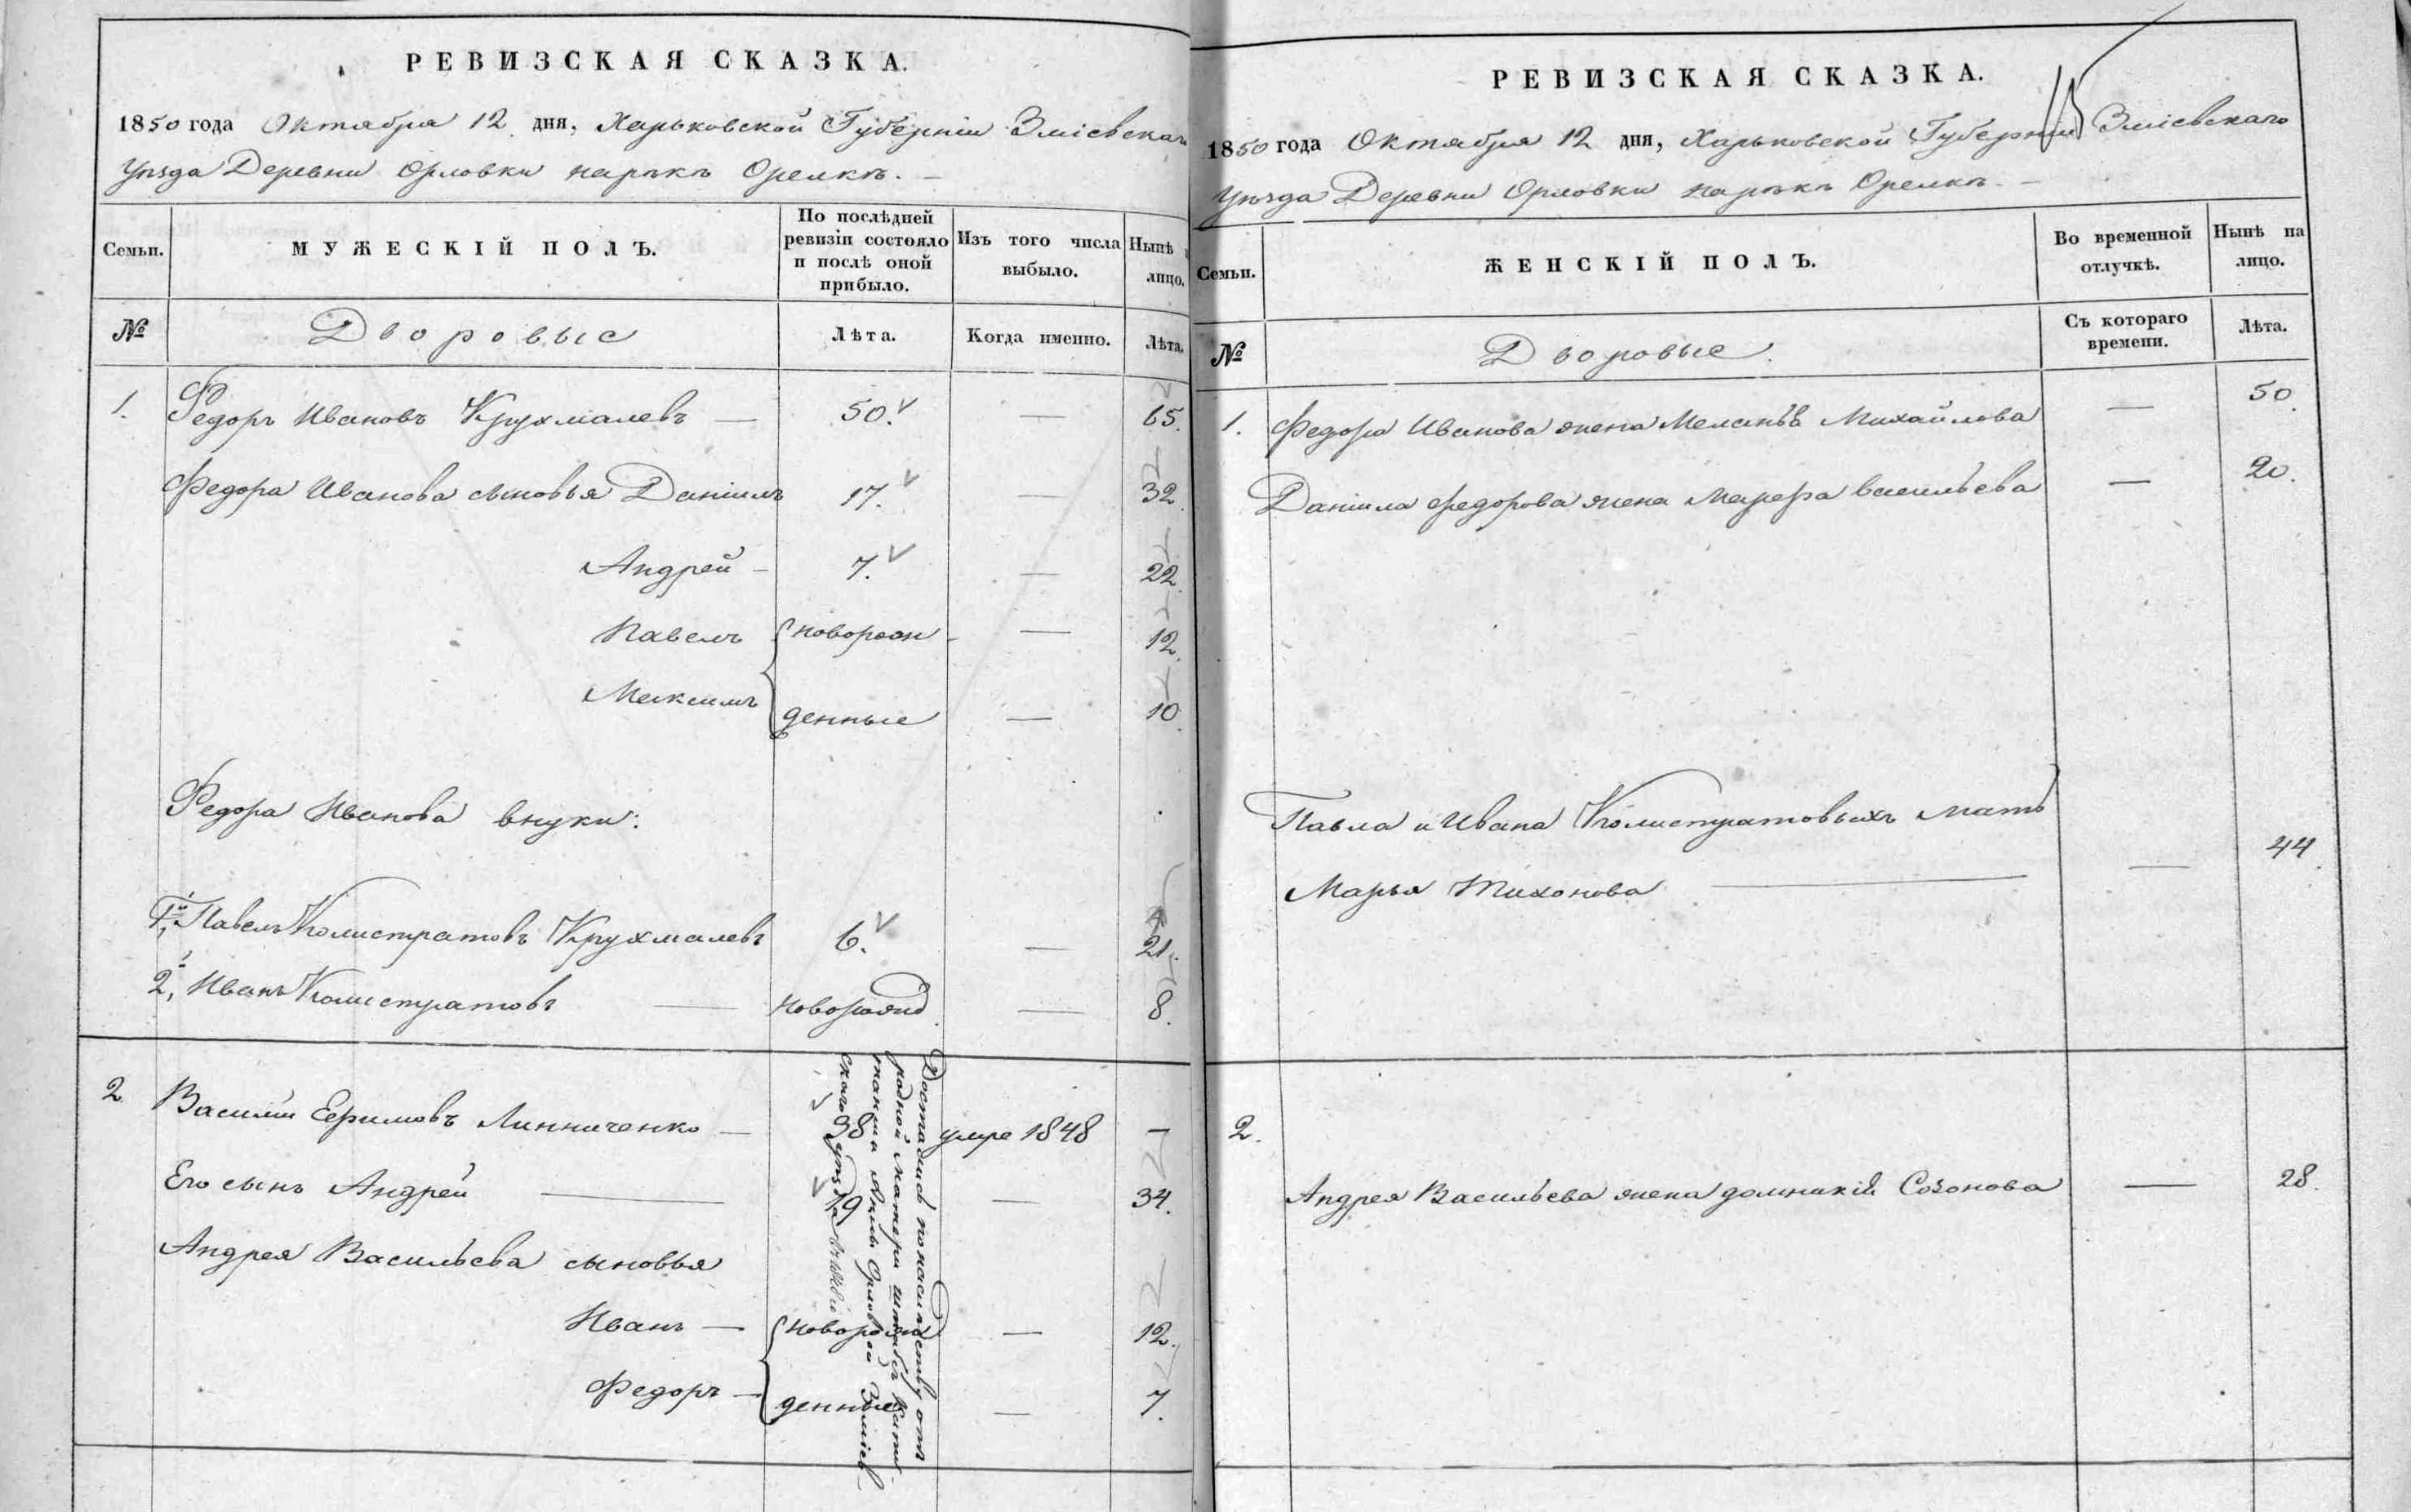 РЕВИЗСКАЯ СКАЗКА.
1850 года Октября 12 дня, Харьковской Губерніи Зміевскаго
Уѣзда Деревни Орловки нарѣкѣ Орелкѣ. —
Семьи.
МУЖЕСКІЙ ПОЛЪ.
По послѣдней ревизіи состояло и послѣ оной прибыло.
Изъ того числа выбыло.
Нынѣ
лицо.
№
Дворовые
Лѣта.
Когда именно.
Лѣта.
1. Федоръ Ивановъ Крухмалевъ — 50. — 65.
Федора Иванова сыновья Даніилъ 17. — 32.
Андрей — 7. — 22.
Павелъ новорож — 12.
Максимъ денные — 10.
Федора Иванова внуки:
1й, Павелъ Колистратовъ Крухмалевъ 6. — 21.
2й, Иванъ Колистратовъ — новорожд. — 8.
2. Василій Ефимовъ Линниченко — 38 умре 1848 —
Его сынъ Андрей — 19 — 34.
Андрея Васильева сыновья
Иванъ — новорож — 12.
Федоръ — денные — 7.
Достались по наслѣдству отъ
родной матери штабсъ капи-
танши Анны Орловой Зміев
скаго уѣзда
РЕВИЗСКАЯ СКАЗКА.
1850 года Октября 12 дня, Харьковской Губерніи Зміевскаго
Уѣзда Деревни Орловки нарѣкѣ Орелкѣ. —
Семьи.
ЖЕНСКІЙ ПОЛЪ.
Во временной отлучкѣ.
Нынѣ на лицо.
№
Дворовые.
Съ котораго времени.
Лѣта.
1. Федора Иванова жена Меланья Михайлова — 50.
Даніила Федорова жена Марфа Васильева — 20.
Павла и Ивана Колистратовыхъ мать
Марья Тихонова — — 44.
2.
Андрея Васильева жена Домникія Созонова — 28.